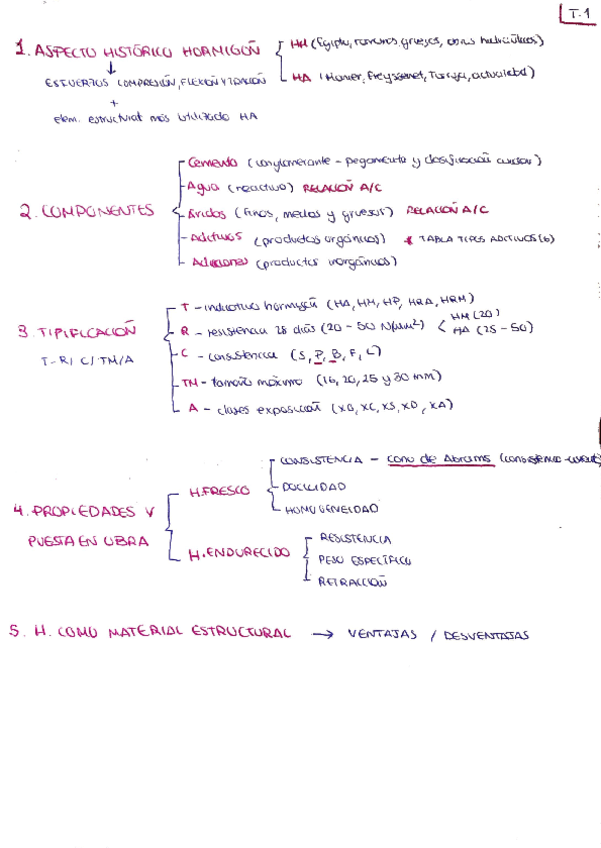 T.1
1. ASPECTO HISTÓRICO HORMIGÓN
HM (Egipto, romanos, griegos, obras hidráulicas)
HA (Monier, Freyssenet, Torroja, actualidad)
ESFUERZOS COMPRESIÓN, FLEXIÓN Y TRACCIÓN
+
elem. estructural más utilizado HA
2. COMPONENTES
Cemento (conglomerante - pegamento y clasificación
Agua (reactivo) RELACIÓN A/C
Áridos (finos, medios y gruesos) RELACIÓN A/C
Aditivos (productos orgánicos) * TABLA TIPOS ADITIVOS (6)
Adiciones (productos inorgánicos)
3. TIPIFICACIÓN
T-R/C/TM/A
T - indicativo hormigón (HA, HM, HP, HRA, HRM)
R - resistencia 28 días (20 - 50 N/mm²) < HM (20)
HA (25 - 50)
C - consistencia (S, P, B, F, L)
TM - tamaño máximo (16, 20, 25 y 30 mm)
A - clases exposición (X0, XC, XS, XD, XA)
4. PROPIEDADES Y
PUESTA EN OBRA
H. FRESCO
CONSISTENCIA - cono de Abrams
DOCILIDAD
HOMOGENEIDAD
H. ENDURECIDO
RESISTENCIA
PESO ESPECÍFICO
RETRACCIÓN
5. H. COMO MATERIAL ESTRUCTURAL → VENTAJAS / DESVENTAJAS